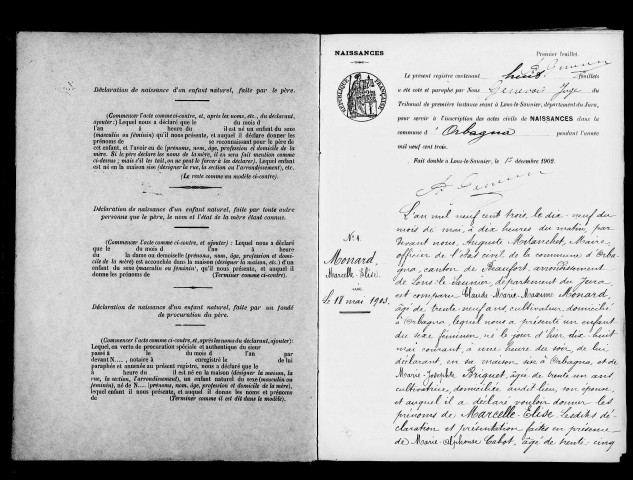 Déclaration de naissance d'un enfant naturel, faite par le père.
(Commencer l'acte comme ci-contre, et, après les noms, etc., du déclarant,
ajouter :) Lequel nous a déclaré que le du mois d
l'an heure du il est né un enfant du sexe
(masculin ou féminin) qu'il nous présente, et auquel il déclare donner les
prénoms de se reconnaissant pour le père de
cet enfant, et l'avoir eu de (prénoms, nom, âge, profession et domicile de la
mère. Si le père déclare les noms de la mère, il en sera fait mention comme
ci-dessus ; mais s'il les tait, on ne peut le forcer à les déclarer). Lequel enfant
est né en la maison sise (désigner la rue, la section ou l'arrondissement), etc.
(Le reste comme au modèle ci-contre).
Déclaration de naissance d'un enfant naturel, faite par toute autre
personne que le père, le nom et l'état de la mère étant connus.
(Commencer l'acte comme ci-contre, et ajouter) : Lequel nous a déclaré
que le du mois d de l'an à heure
du la dame ou demoiselle (prénoms, nom, âge, profession et domi-
cile de la mère) est accouchée dans la maison (désigner la maison, etc.) d'un
enfant du sexe (masculin ou féminin), qu'il nous présente, et auquel il
donne les prénoms de (Terminer comme ci-contre).
Déclaration de naissance d'un enfant naturel, faite par un fondé
de procuration du père.
(Commencer l'acte comme ci-contre, et, après les noms du déclarant, ajouter):
Lequel, en vertu de procuration spéciale et authentique du sieur
passée à le du mois d l'an par
devant N..., notaire à enregistrée le de lui
paraphée et annexée au présent registre, nous a déclaré que le
à heure du il est né en la maison (désigner la maison, la
rue, la section, l'arrondissement), un enfant naturel du sexe (masculin ou
féminin), né de N... (prénoms, nom, âge, profession et domicile de la mère),
lequel enfant il nous présente, et auquel il donne les noms et prénoms
de (Terminer comme il est dit dans le modèle).
NAISSANCES
Premier feuillet.
Le présent registre contenant huit feuillets
a été coté et paraphé par Nous Juge du
Tribunal de première instance séant à Lons-le-Saunier, département du Jura,
pour servir à l'inscription des actes civils de NAISSANCES dans la
commune d'Orbagna pendant l'année
mil neuf cent trois.
Fait double à Lons-le-Saunier, le 1er décembre 1902.
RÉPUBLIQUE FRANÇAISE
N° 1.
Monard,
Marcelle-Elise.
née
Le 18 mai 1903.
L'an mil neuf cent trois, le dix-neuf du
mois de mai, à dix heures du matin, par
devant nous, Auguste Mitanchet, Maire,
officier de l'état civil de la commune d'Orba-
gna, canton de Beaufort, arrondissement
de Lons-le-Saunier département du Jura
est comparu Claude Marie Maxime Monard,
âgé de vingt neuf ans, cultivateur, domicilié
à Orbagna, lequel nous a présenté un enfant
du sexe féminin, né le jour d'hier, dix huit
mai courant, à une heure du soir, de lui
déclarant, en sa maison, sise à Orbagna, et de
Marie-Josephte Briquet, âgée de trente un ans,
cultivatrice, domiciliée audit lieu, son épouse,
et auquel il a déclaré vouloir donner les
prénoms de Marcelle-Elise. Lesdites dé-
claration et présentation faites en présence
de Marie Alphonse Cabot, âgé de trente-cinq